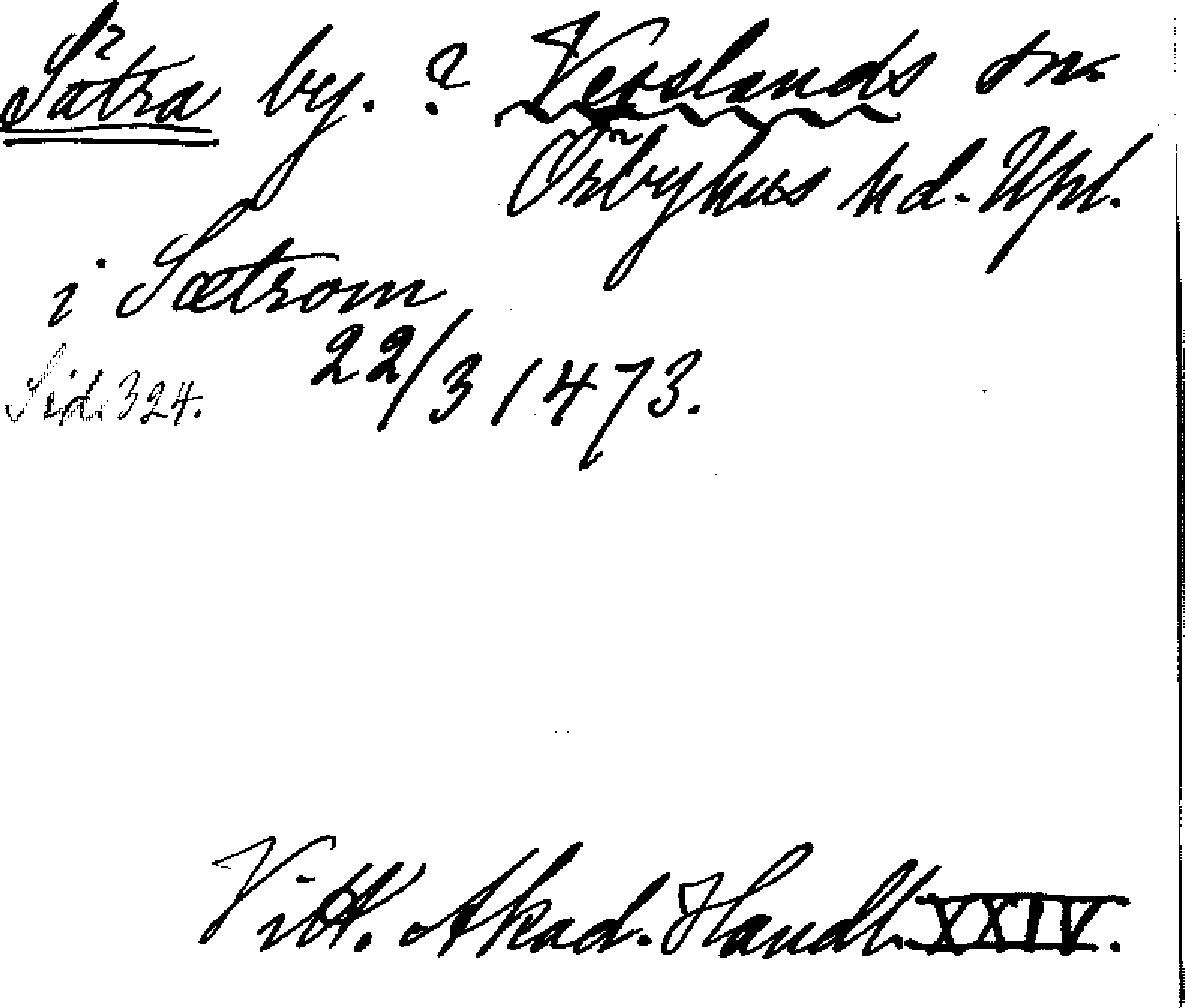 Sätra by. ? Vesslands sn.
Örbyhus hd. Upl.
i Sætrom
22/3 1473.
Sid. 324.
Vitt. Akad. Handl. XXIV.